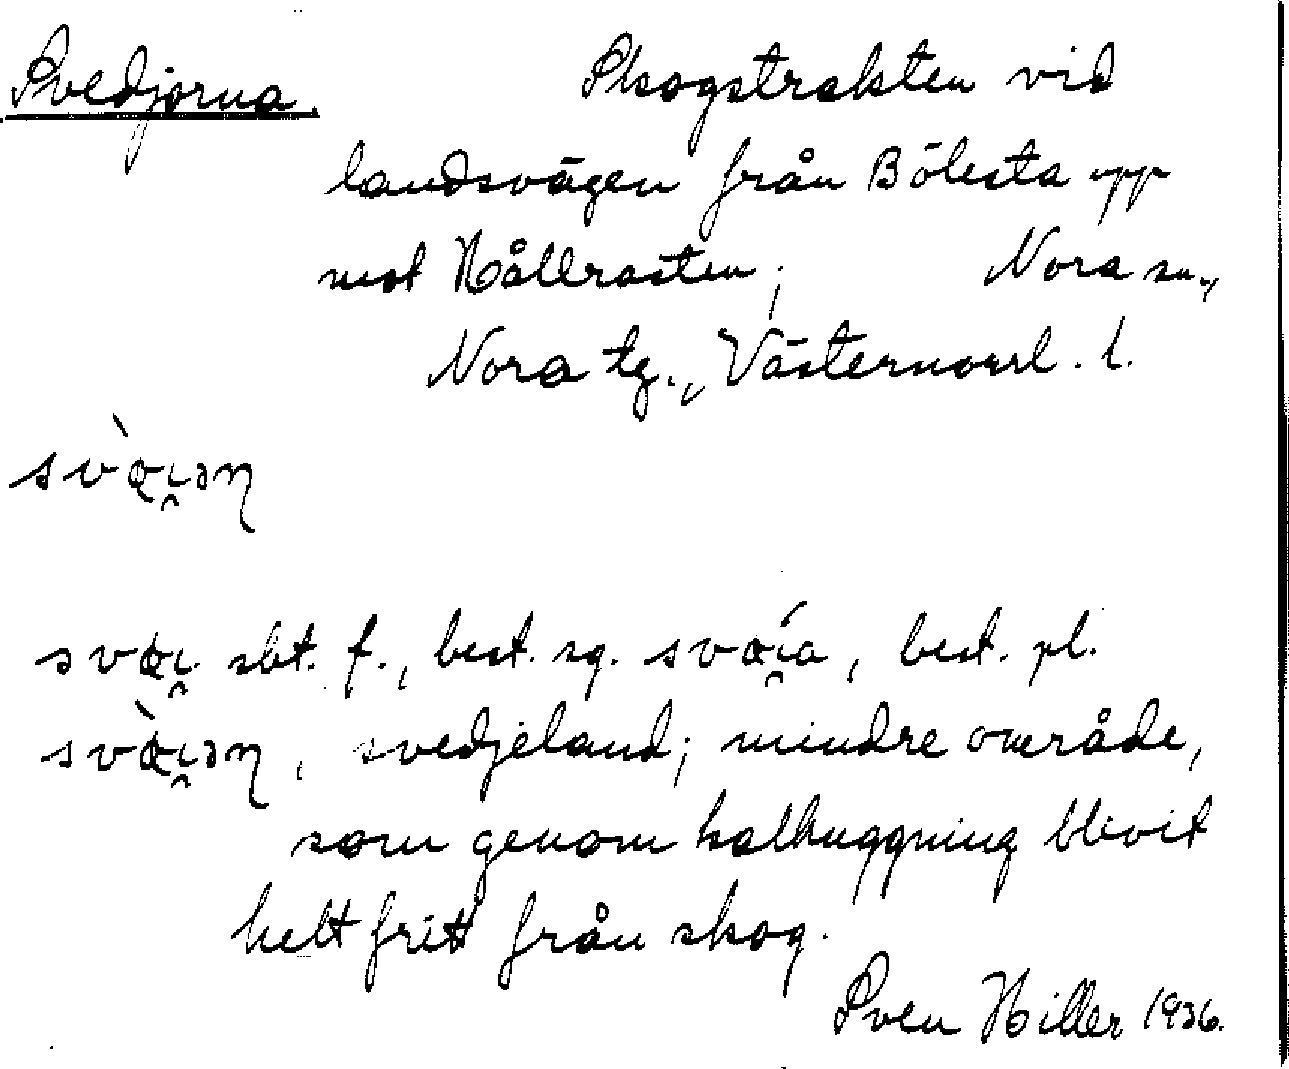 Svedjorna. Skogstrakten vid
landsvägen från Bölesta upp
mot Hållrasten; Nora sn.,
Nora tg., Västernorrl. l.
svὰı̯əɳ
svαı̯ sbt. f., best. sg. svαı̯́a, best. pl.
svὰı̯əɳ, svedjeland; mindre område,
som genom kalhuggning blivit
helt fritt från skog.
Sven Hiller 1936.